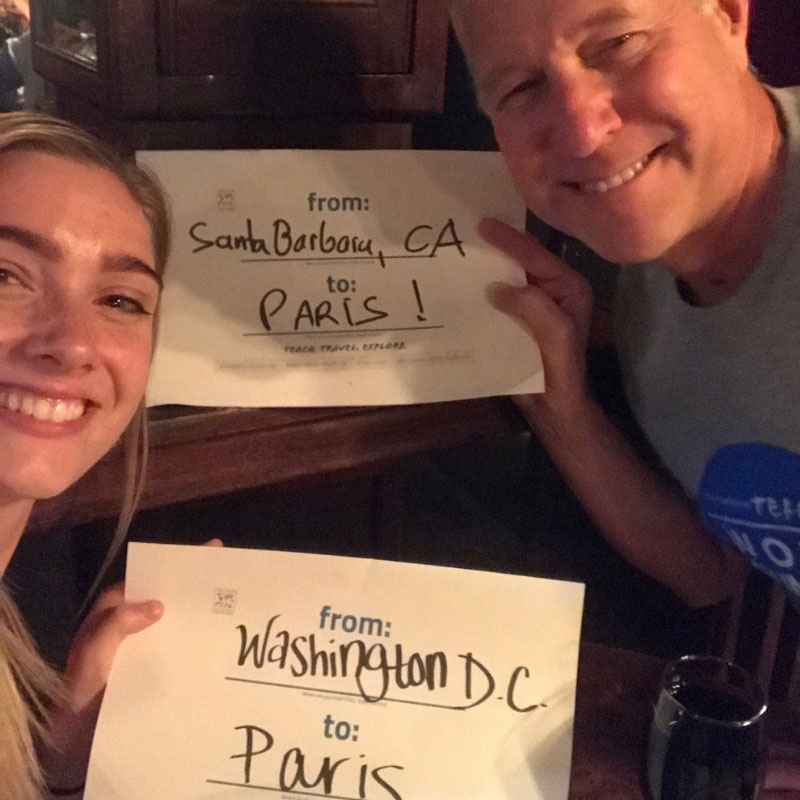 from:
Santa Barbara, CA
to:
PARIS!
TEACH. TRAVEL. EXPLORE.
from:
Washington D.C.
to:
Paris